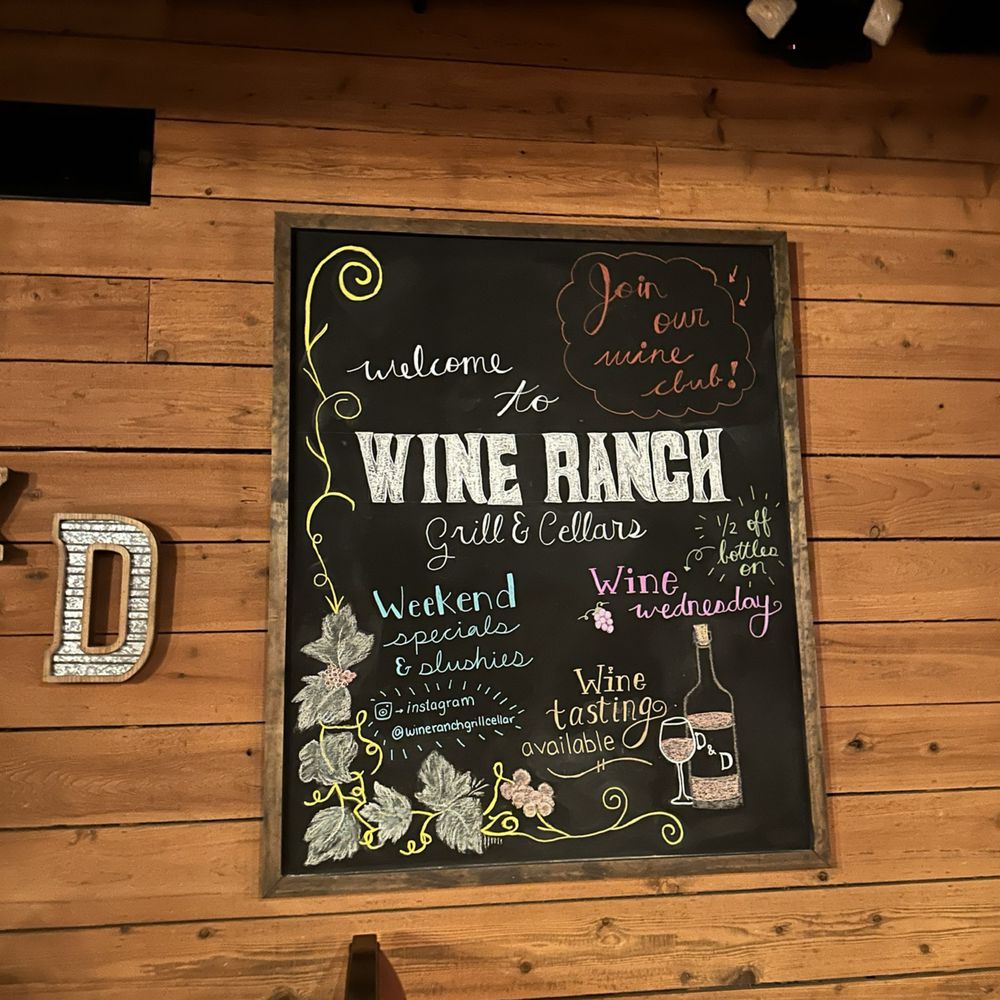 Join
our
wine
club!
welcome
to
WINE RANCH
Grill & Cellars
1/2 off
bottles
on
Wine
wednesday
Weekend
specials
& slushies
→ instagram
@wineranchgrillcellar
Wine
tasting
available
D & D
D